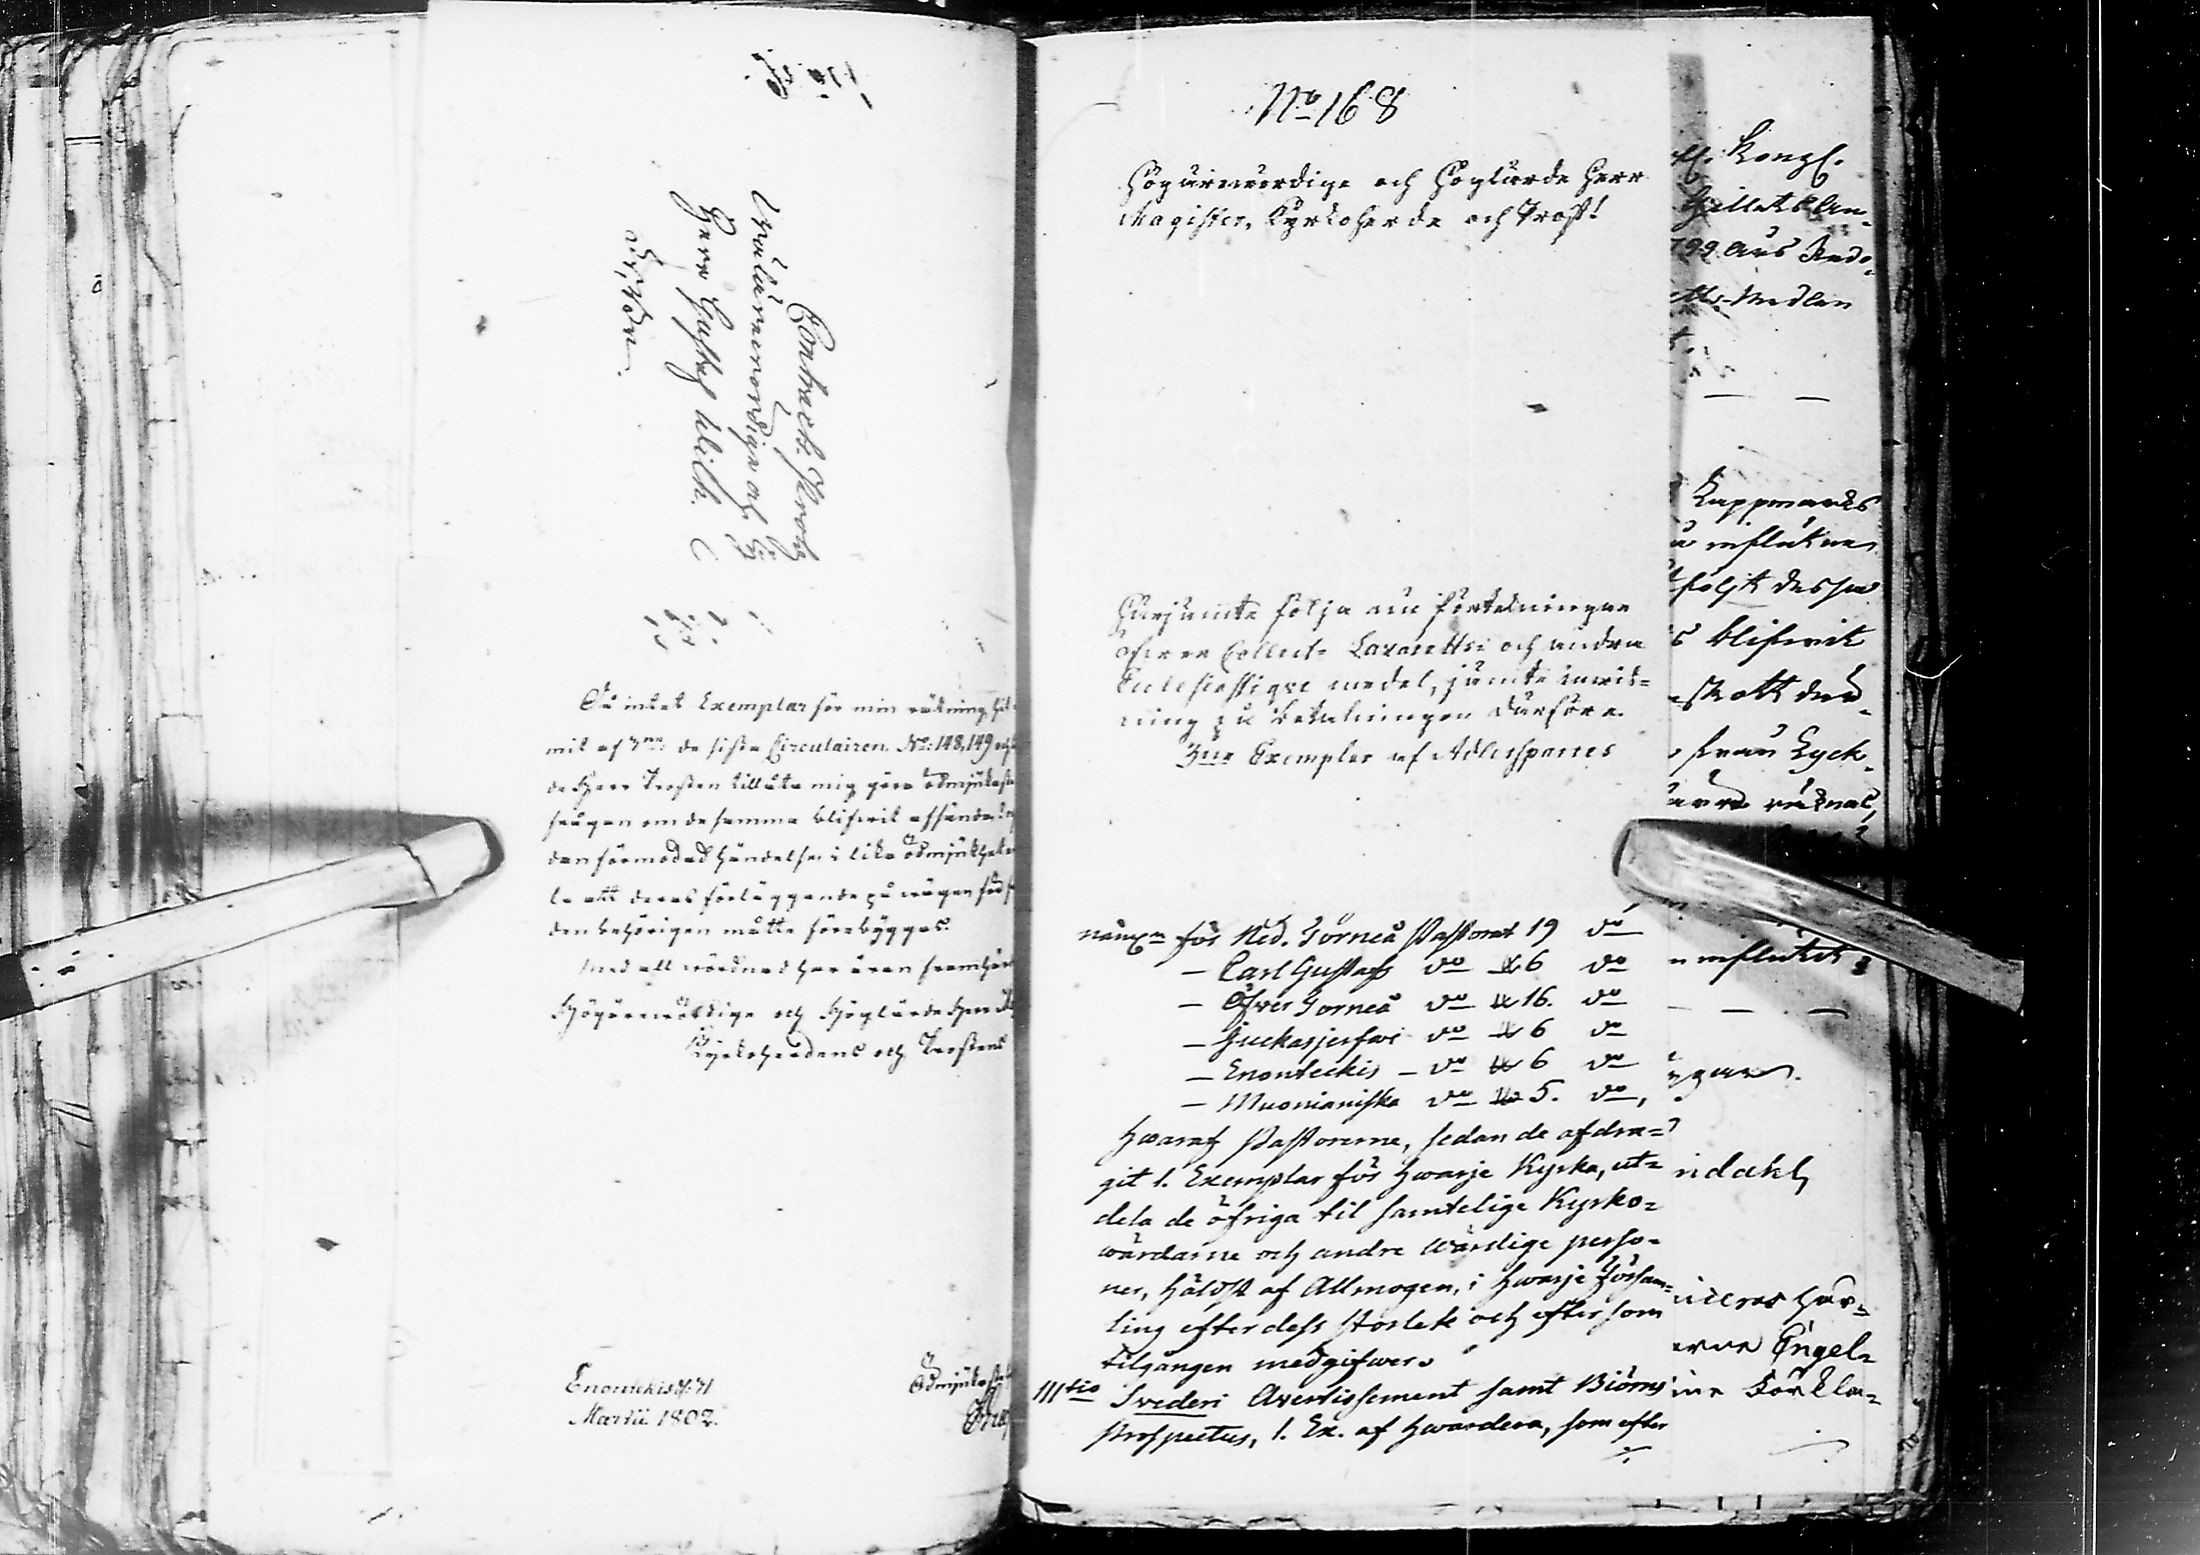 Contract. Prosten
Herr Gustaf Wilh. C
Då intet Exemplar för min räkning hit
mit af 3ne de sista Circulairen No: 148, 149 och
de Herr Prosten tillåta mig göra ödmjukaste
frågan om de samma blifwit afsände, i
den förmodad händelse i lika ödmjukhet
le att deras förläggande på wägen hit
den behörigen måtte förebyggas.
Med all wördnad har äran framhärda
Högärewördige och Höglärde Herr
Kyrkoherdens och Prostens
Enontekis d: 31
Martii 1802.
Ödmjukaste
No 168
Högärewördige och Höglärde Herr
Magister, Kyrkoherde och Prost!
Härjämte följa nu förtekningar
öfwer Collect- Lazaretts- och andra
Ecclesiastique medel, jämte anwis=
ning på betalningen därföre.
3ne Exemplar af Adlersparres
näml. för Ned. Torneå Pastorat 19 do
— Carl Gustafs do 6 do
— Öfver Torneå do 16. do
— Juckasjerfwi do 6 do
— Enonteckis — do 6 do
— Muonioniska do 5. do,
hwaraf Pastorerne, sedan de afdra=
git 1. Exemplar för hwarje Kyrka, ut=
dela de öfriga til samtelige Kyrko=
wärdarne och andre wärdige perso=
ner, häldst af Allmogen, i hwarje församl=
ling efter dess storlek och efter som
tilgången medgifwer.
IIItio Svederi Avertissement samt Biörns
Prospectus, 1. Ex. af hwardera, som efter
Kongl.
799 Års Redo=
Medlen
Lappmarks
influtne
följt dessa
s blifwit
skott der
från Lyck=
räknas,
influtit
ndahl,
Engel=
Förkla=